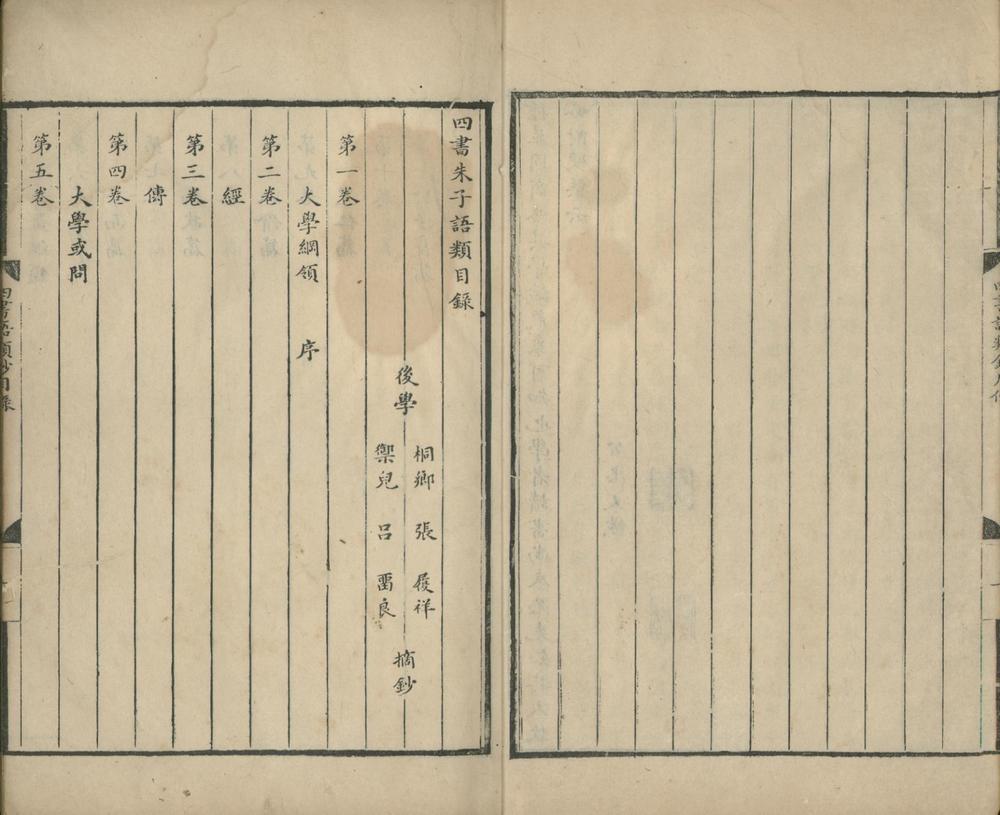 四書朱子語類目錄
後學
桐鄉 張 履祥
禦兒 呂 畱良
摘鈔
第一卷
大學綱領 序
第二卷
經
第三卷
傳
第四卷
大學或問
第五卷
四書語類鈔目錄